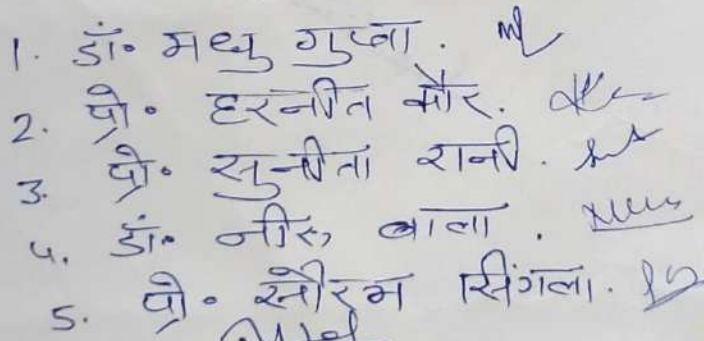 1. डॉ॰ मधु गुप्ता.
2. प्रो॰ हरनीत कौर.
3. प्रो॰ सुनीता रानी.
4. डॉ॰ नीरू बाला.
5. प्रो॰ सौरभ सिंगला.